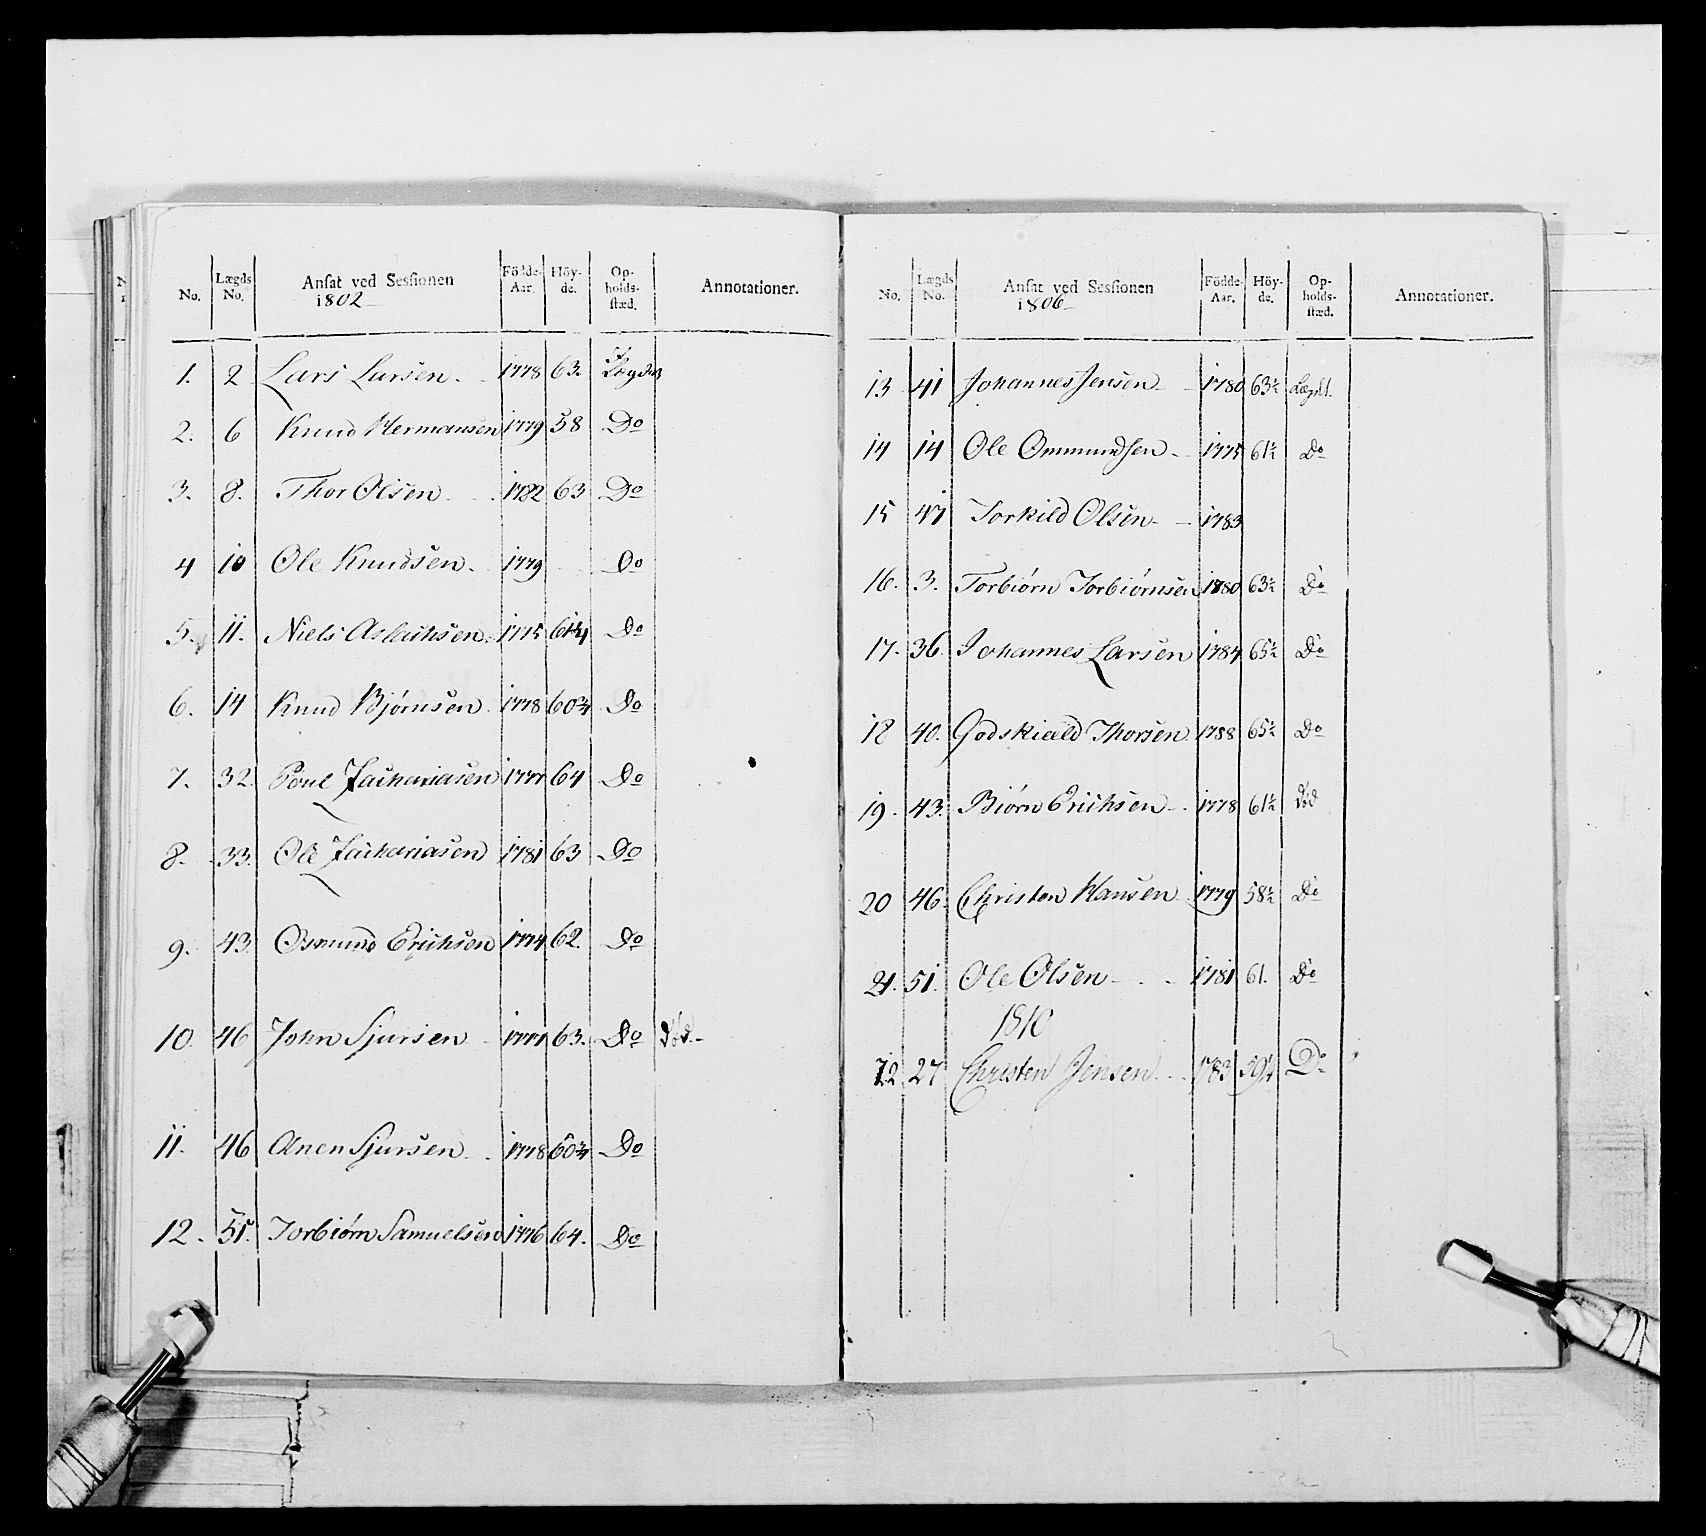 No. Lægds No. Ansat ved Sessionen 1802 Födde-Aar. Höyde. Opholds-stæd. Annotationer.
1. 2 Lars Larsen. 1778 63. I Lægdet
2. 6 Knud Hermansen 1779 58 Do
3. 8. Thor Olsen 1782 63 Do
4 10 Ole Knudsen. 1779 Do
5. 11. Niels Aslachsen. 1775 61¾ Do
6. 14 Knud Bjørnsen 1778 60¾ Do
7. 32. Poul Zachariasen 1777 64 Do
8. 33. Ole Zachariasen 1781 63 Do
9. 43. Osmund Erichsen 1774 62. Do
10. 46 John Sjursen 1771 63. Do død.
11. 46 Anen Sjursen 1778 60¾ Do
12. 51. Torbiørn Samuelsen 1776 64. Do
No. Lægds No. Ansat ved Sessionen 1806 Födde-Aar. Höyde. Opholds-stæd. Annotationer.
13 41 Johannes Jensen 1780 63½ Lægdt.
14 14 Ole Ommundsen 1775 61½ Do
15 47 Torkild Olsen 1783
16. 3. Torbiørn Torbiørnsen 1780 63½ Do
17. 36. Johannes Larsen 1784 65½ Do
18 40. Godskield Thorsen 1788 65½ Do
19. 43. Biørn Erichsen 1778 61½ død
20 46. Christen Hansen 1779 58½ Do
21. 51. Ole Olsen 1781 61. Do
1810
22 27 Christen Jensen 1783 59¼ Do